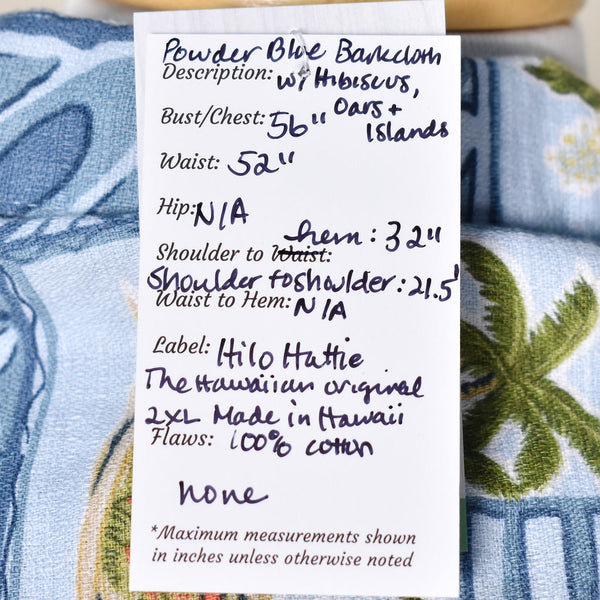 Powder Blue Barkcloth
Description: w/ Hibiscus,
Oars +
Islands
Bust/Chest: 56"
Waist: 52"
Hip: N/A
hem: 32"
Shoulder to Waist:
Shoulder to shoulder: 21.5"
Waist to Hem: N/A
Label: Hilo Hattie
The Hawaiian original
2XL Made in Hawaii
Flaws: 100% cotton
none
*Maximum measurements shown
in inches unless otherwise noted